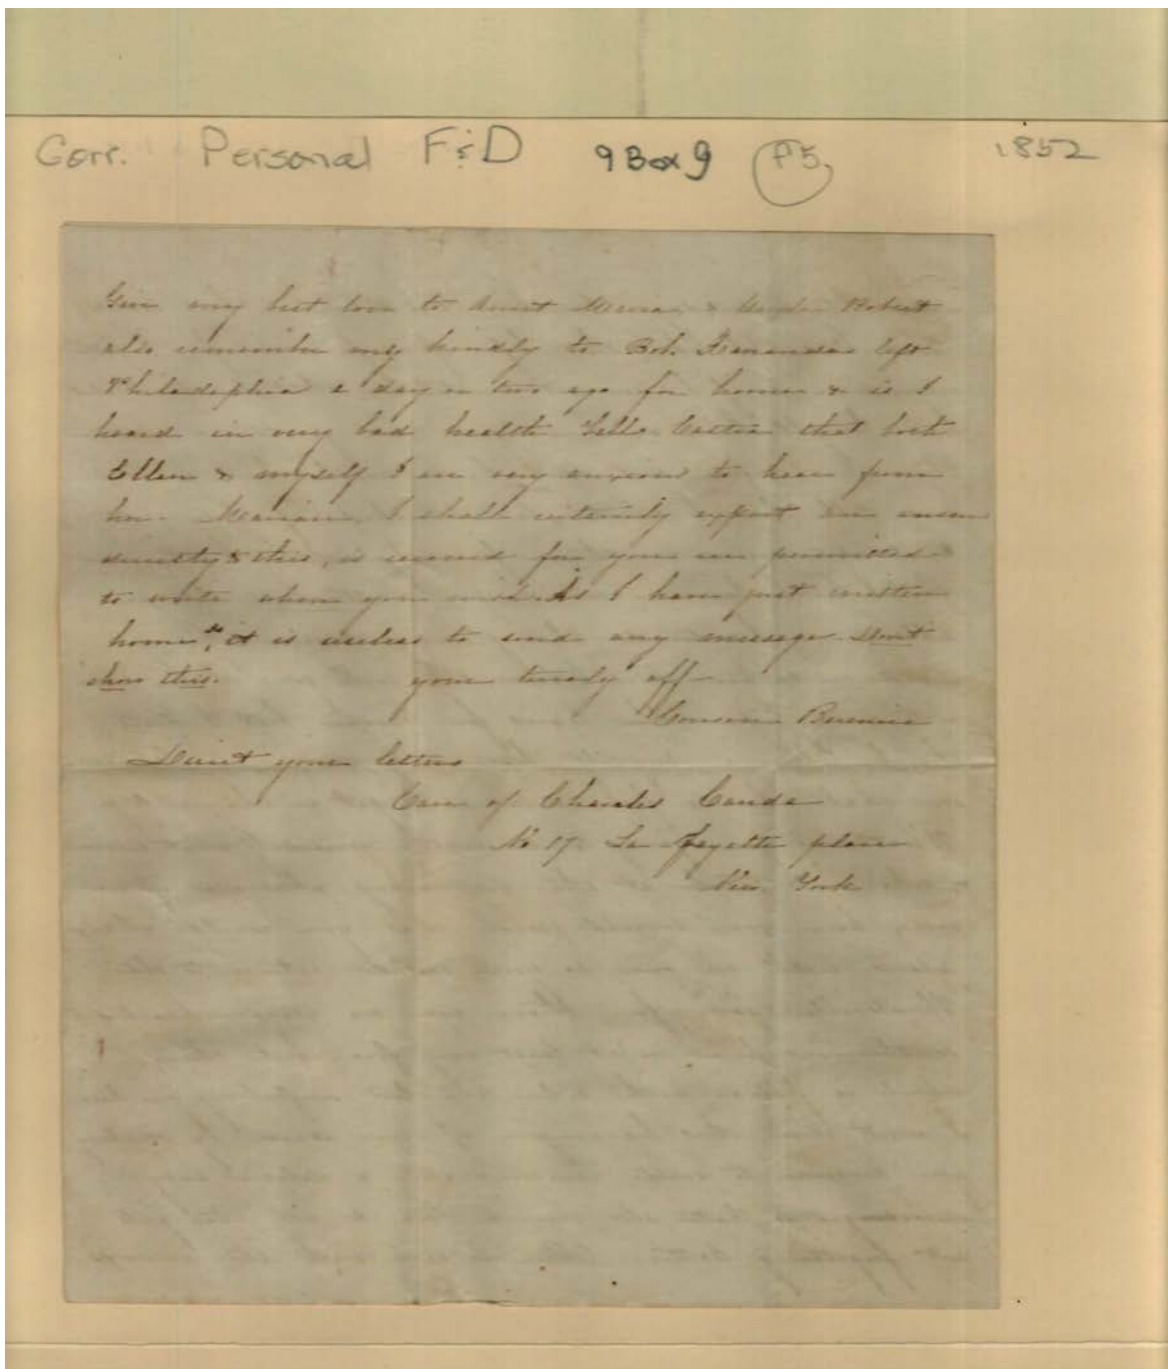 Corr. Personal F&D 9 Box 9 P5, 1852
Give my best love to Aunt & Uncle Robert
also remember me kindly to Bob. left
Philadelphia a day or two ago for home & is I
heard in very bad health Tell that both
Ellen & myself I am very anxious to hear from
her. I shall certainly expect an
directly to this, for you are permitted
to write when you As I have just written
home, it is useless to send any message Dont
show this. your truely aff
Cousin Berenice
Direct your letters
Care of Charles Canda
No 17 La fayette place
New York